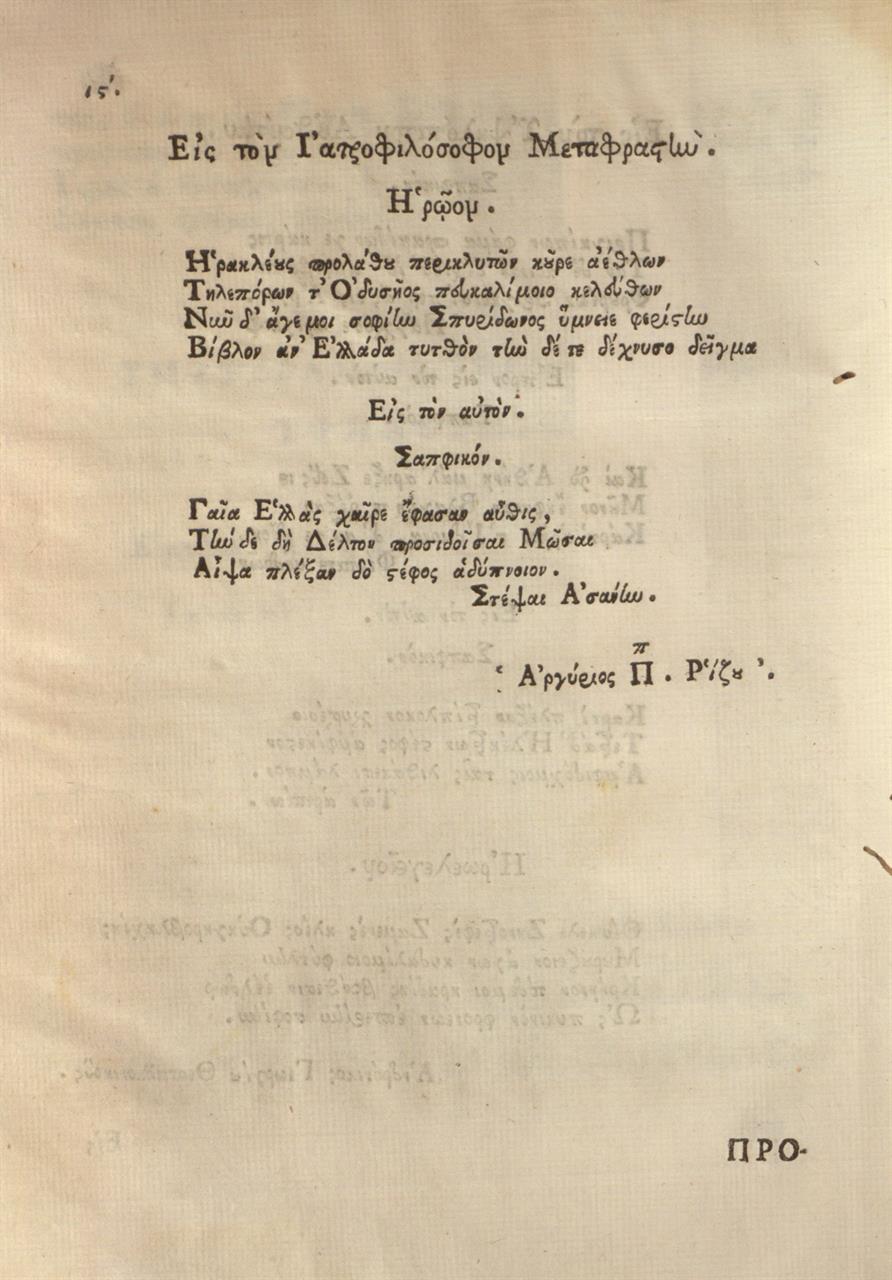 ις'.
Εἰς τὸν Ἰατροφιλόσοφον Μεταφραστὴν.
Ἡρῷον.
Ἡρακλέους προλάθου περικλυτῶν κοῦρε ἀέθλων
Τηλεπόρων τ' Ὀδυσῆος πευκαλίμοιο κελεύθων
Νιῦ δ' ἄγε μοι σοφίην Σπυρίδωνος ὕμνειε φερίστην
Βίβλον ἀν' Ἑλλάδα τυτθὸν τὴν δέ τε δέχνυσο δεῖγμα
Εἰς τὸν αὐτὸν.
Σαπφικόν.
Γαῖα Ἑλλὰς χαῖρε ἔφασαν αὖθις,
Τὴν δε δὴ Δέλτον προσιδοῖσαι Μῶσαι
Αἶψα πλέξαν δὸ στέφος ἁδύπνοιον.
Στέψαι Ἀσανίην.
Ἀργύριος Π π. Ῥίζου.
ΠΡΟ-